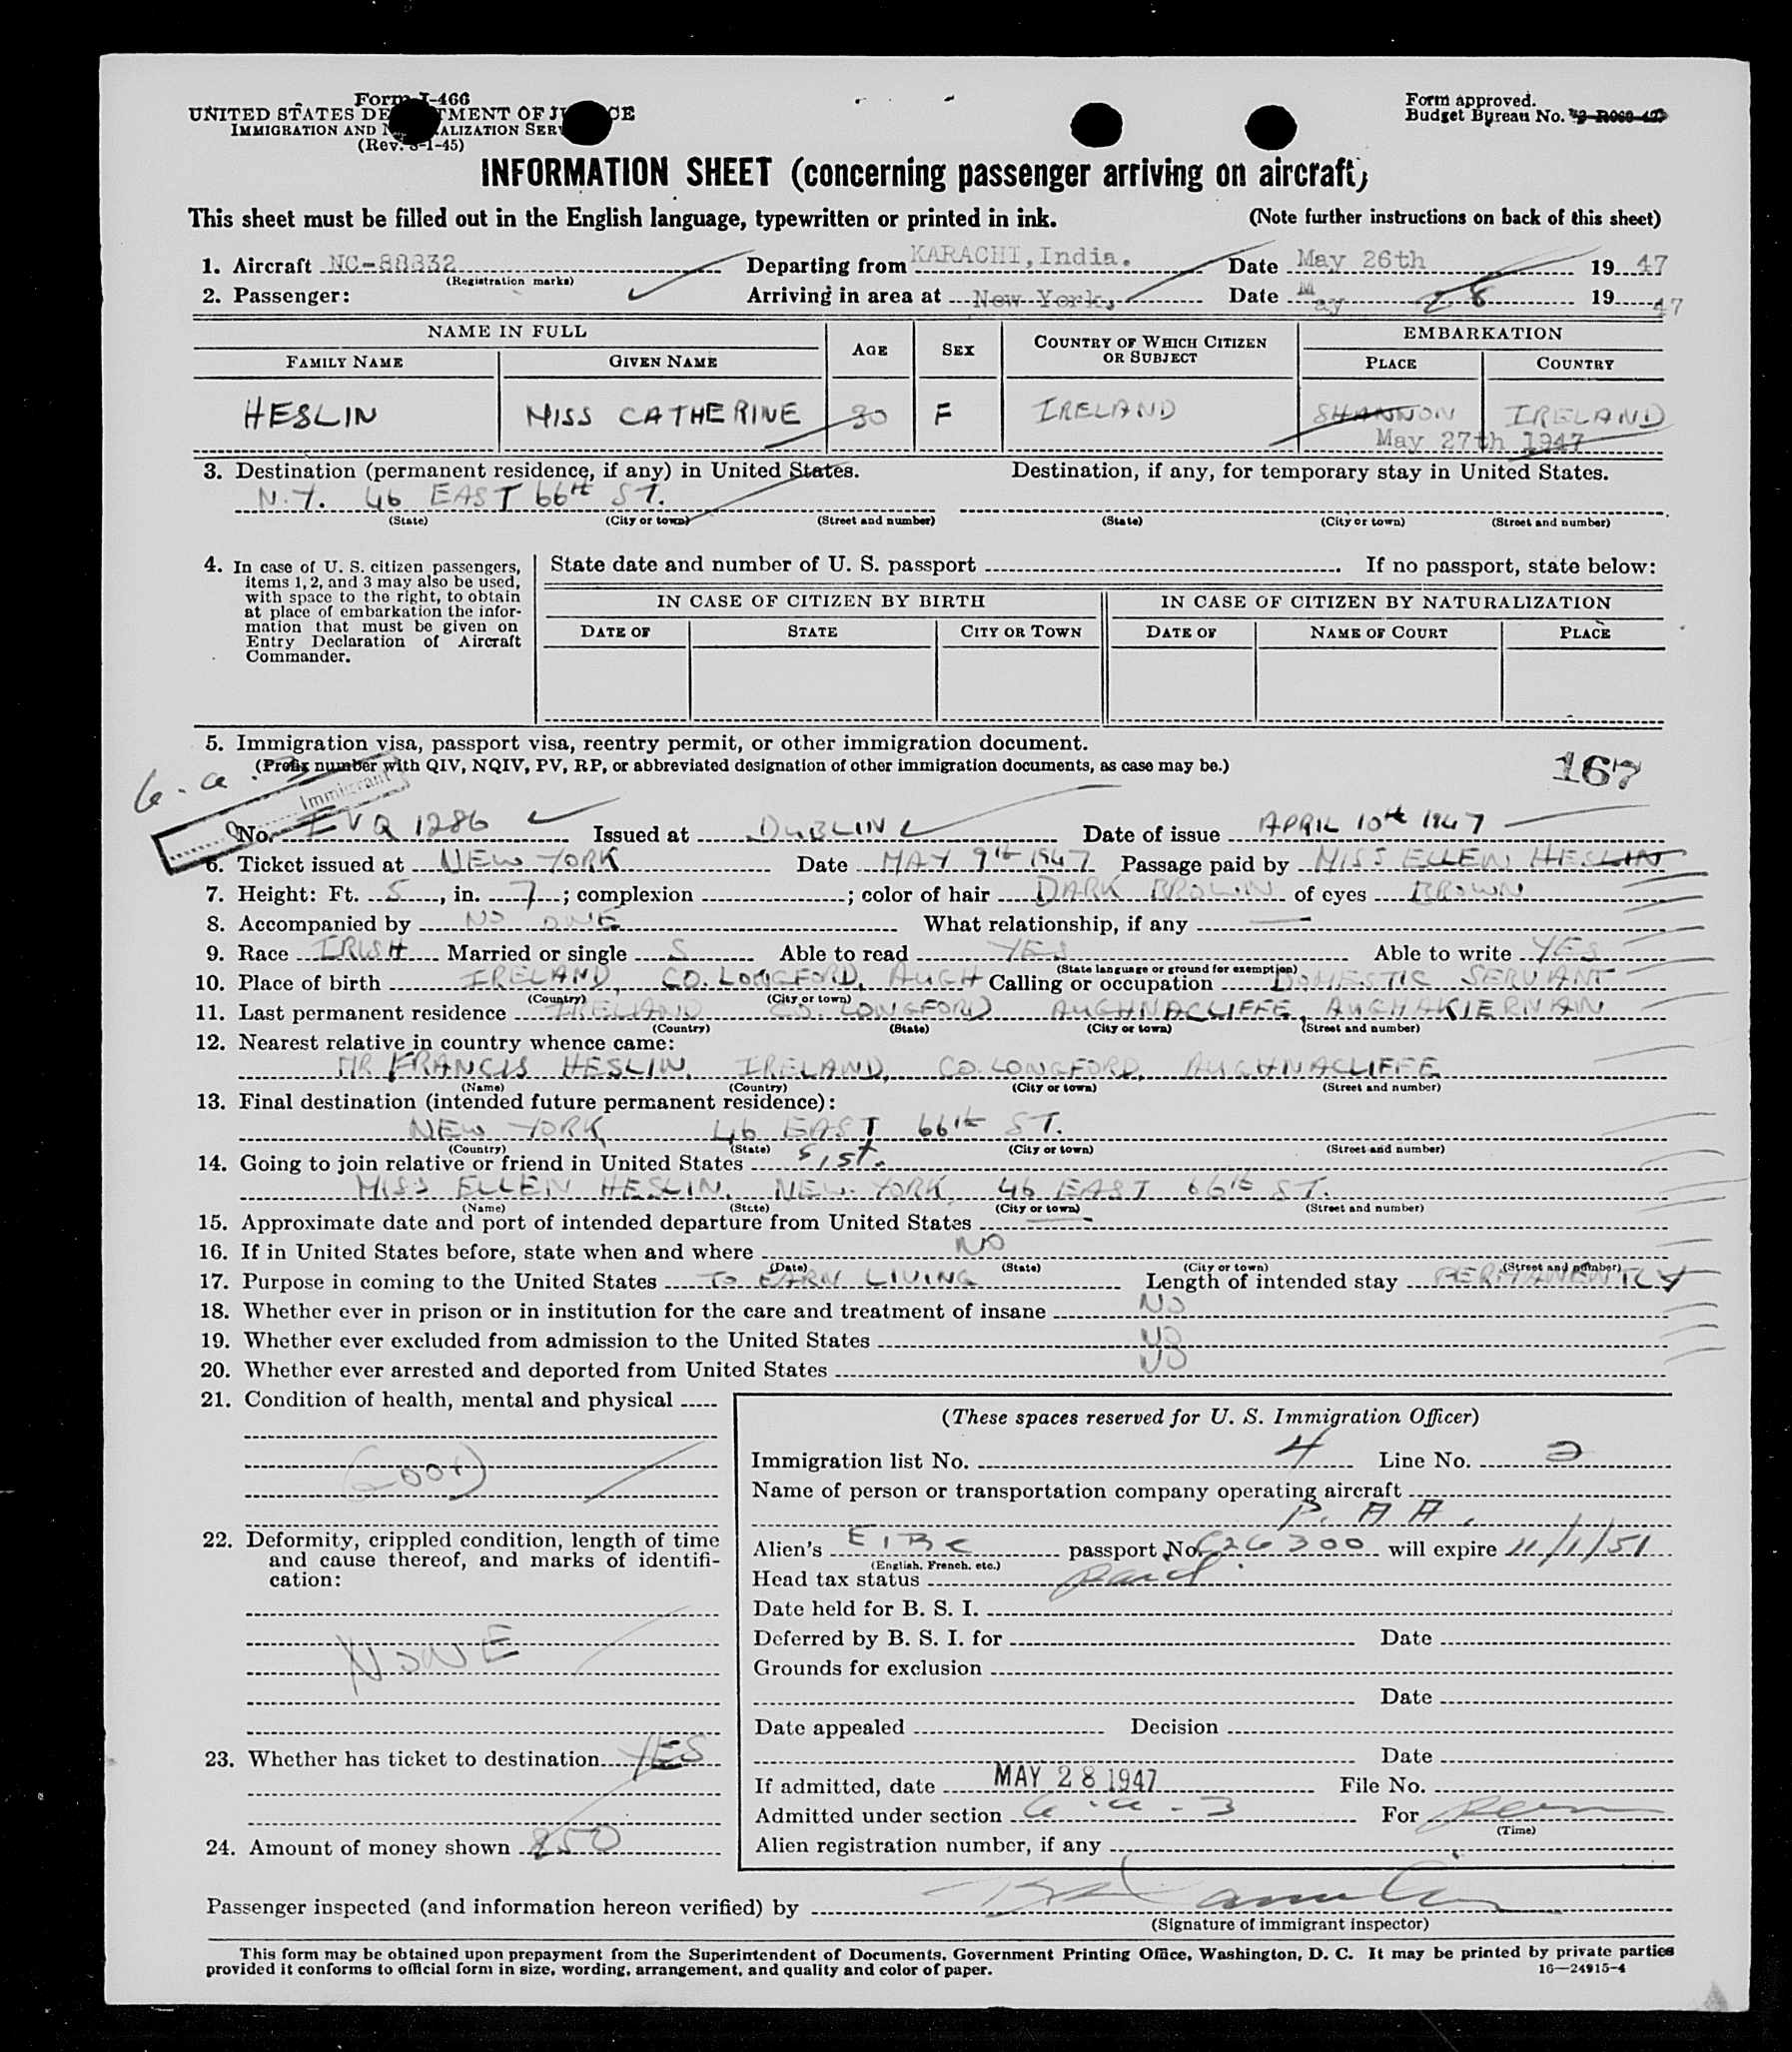 Form I-466
UNITED STATES DEPARTMENT OF JUSTICE
IMMIGRATION AND NATURALIZATION SERVICE
(Rev. 3-1-45)
Form approved.
Budget Bureau No.
INFORMATION SHEET (concerning passenger arriving on aircraft)
This sheet must be filled out in the English language, typewritten or printed in ink. (Note further instructions on back of this sheet)
1. Aircraft NC-88832 Departing from KARACHI, India. Date May 26th 1947
(Registration marks)
2. Passenger: Arriving in area at New York, Date May 28 1947
NAME IN FULL AGE SEX COUNTRY OF WHICH CITIZEN OR SUBJECT EMBARKATION
FAMILY NAME GIVEN NAME PLACE COUNTRY
HESLIN MISS CATHERINE 30 F IRELAND SHANNON IRELAND
May 27th 1947
3. Destination (permanent residence, if any) in United States. Destination, if any, for temporary stay in United States.
N.Y. 46 EAST 66th ST.
(State) (City or town) (Street and number) (State) (City or town) (Street and number)
4. In case of U. S. citizen passengers, items 1, 2, and 3 may also be used, with space to the right, to obtain at place of embarkation the information that must be given on Entry Declaration of Aircraft Commander.
State date and number of U. S. passport If no passport, state below:
IN CASE OF CITIZEN BY BIRTH IN CASE OF CITIZEN BY NATURALIZATION
DATE OF STATE CITY OR TOWN DATE OF NAME OF COURT PLACE
5. Immigration visa, passport visa, reentry permit, or other immigration document.
(Prefix number with QIV, NQIV, PV, RP, or abbreviated designation of other immigration documents, as case may be.)
167
6.a.3
Immigrant
No. IVQ 1286 Issued at DUBLIN Date of issue APRIL 10th 1947
6. Ticket issued at NEW YORK Date MAY 9th 1947 Passage paid by MISS ELLEN HESLIN
7. Height: Ft. 5, in. 7; complexion ; color of hair DARK BROWN of eyes BROWN
8. Accompanied by NO ONE What relationship, if any —
9. Race IRISH Married or single S Able to read YES Able to write YES
(State language or ground for exemption)
10. Place of birth IRELAND, CO. LONGFORD, AUGH Calling or occupation DOMESTIC SERVANT
(Country) (City or town)
11. Last permanent residence IRELAND CO. LONGFORD AUGHNACLIFFE, AUGHAKIERNAN
(Country) (State) (City or town) (Street and number)
12. Nearest relative in country whence came:
MR FRANCIS HESLIN, IRELAND, CO. LONGFORD, AUGHNACLIFFE
(Name) (Country) (City or town) (Street and number)
13. Final destination (intended future permanent residence):
NEW YORK 46 EAST 66th ST.
(Country) (State) (City or town) (Street and number)
14. Going to join relative or friend in United States Sist.
MISS ELLEN HESLIN, NEW YORK, 46 EAST 66th ST.
(Name) (State) (City or town) (Street and number)
15. Approximate date and port of intended departure from United States —
16. If in United States before, state when and where NO
(Date) (State) (City or town) (Street and number)
17. Purpose in coming to the United States TO EARN LIVING Length of intended stay PERMANENTLY
18. Whether ever in prison or in institution for the care and treatment of insane NO
19. Whether ever excluded from admission to the United States NO
20. Whether ever arrested and deported from United States NO
21. Condition of health, mental and physical
Good
22. Deformity, crippled condition, length of time and cause thereof, and marks of identification:
NONE
23. Whether has ticket to destination YES
24. Amount of money shown 850
(These spaces reserved for U. S. Immigration Officer)
Immigration list No. 4 Line No. 3
Name of person or transportation company operating aircraft
P. A A.
Alien's EIRE passport No. C26300 will expire 11/1/51
(English, French, etc.)
Head tax status paid
Date held for B. S. I.
Deferred by B. S. I. for Date
Grounds for exclusion
Date
Date appealed Decision
Date
If admitted, date MAY 28 1947 File No.
Admitted under section 6.a.-3 For Perm
(Time)
Alien registration number, if any
Passenger inspected (and information hereon verified) by
(Signature of immigrant inspector)
This form may be obtained upon prepayment from the Superintendent of Documents, Government Printing Office, Washington, D. C. It may be printed by private parties
provided it conforms to official form in size, wording, arrangement, and quality and color of paper. 16—24915-4